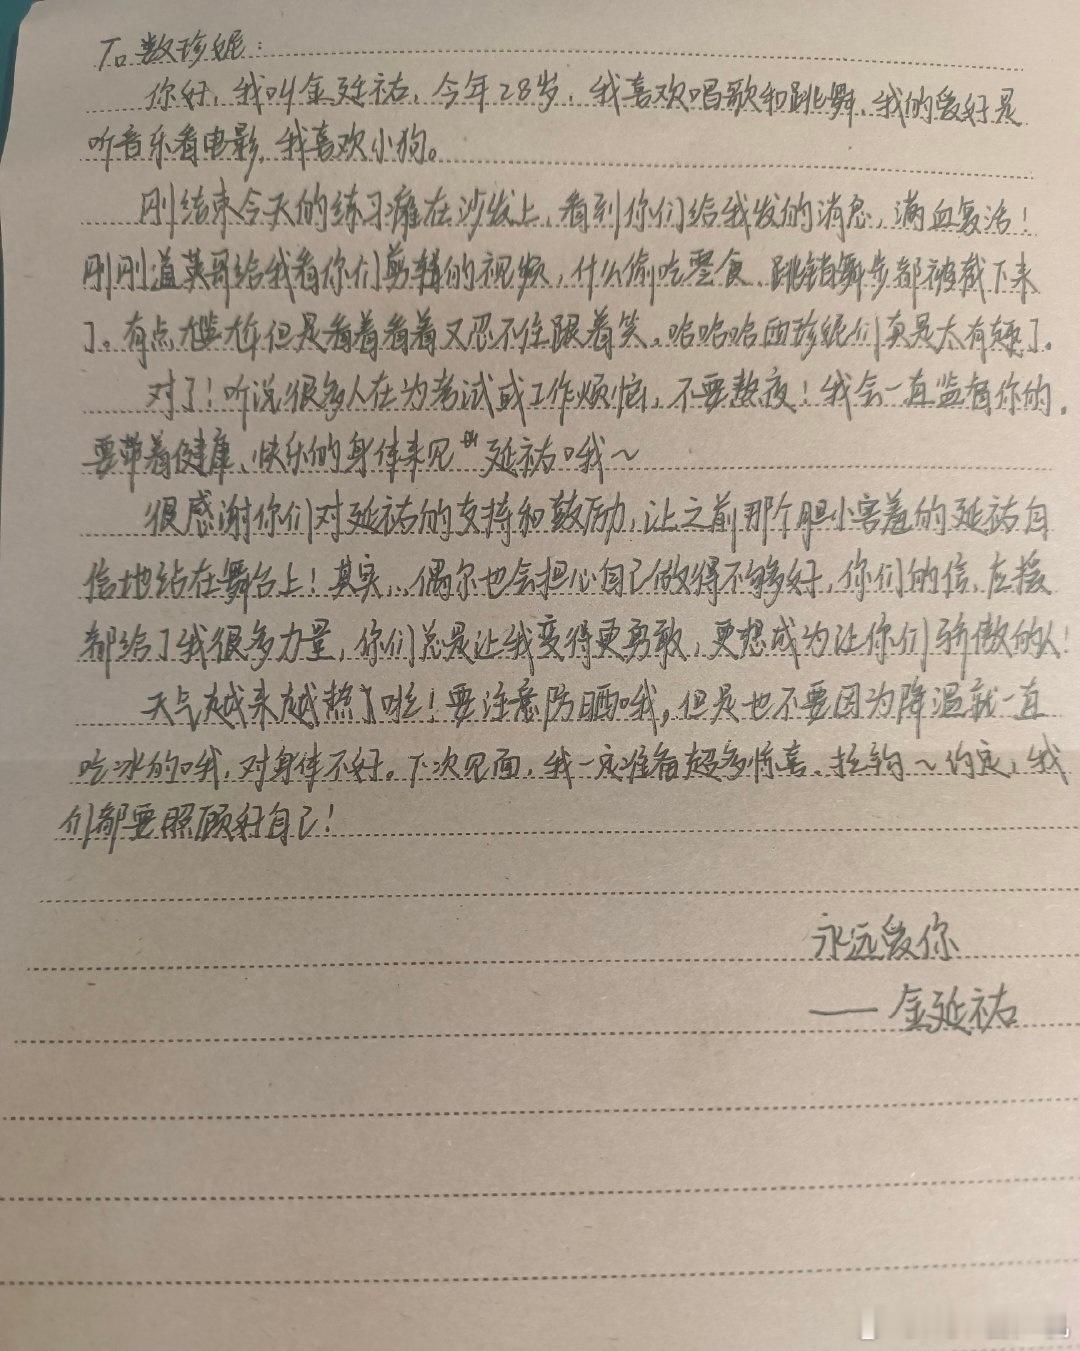 To 数珍妮:
你好,我叫金延祐,今年28岁,我喜欢唱歌和跳舞,我的爱好是
听音乐看电影,我喜欢小狗。
刚结束今天的练习瘫在沙发上,看到你们给我发的消息,满血复活!
刚刚道英哥给我看你们剪辑的视频,什么偷吃零食、跳错舞步都被截下来
了。有点尴尬但是看着看着又忍不住跟着笑。哈哈哈西珍妮们真是太有趣了。
对了!听说很多人在为考试或工作烦恼,不要熬夜!我会一直监督你的,
要带着健康、快乐的身体来见“延祐哦~
很感谢你们对延祐的支持和鼓励,让之前那个胆小害羞的延祐自
信地站在舞台上!其实...偶尔也会担心自己做得不够好,你们的信、应援
都给了我很多力量,你们总是让我变得更勇敢,更想成为让你们骄傲的人!
天气越来越热了啦!要注意防晒哦,但是也不要因为降温就一直
吃冰的哦,对身体不好。下次见面,我一定准备超多惊喜、拉钩~约定,我
们都要照顾好自己!
永远爱你
——金延祐